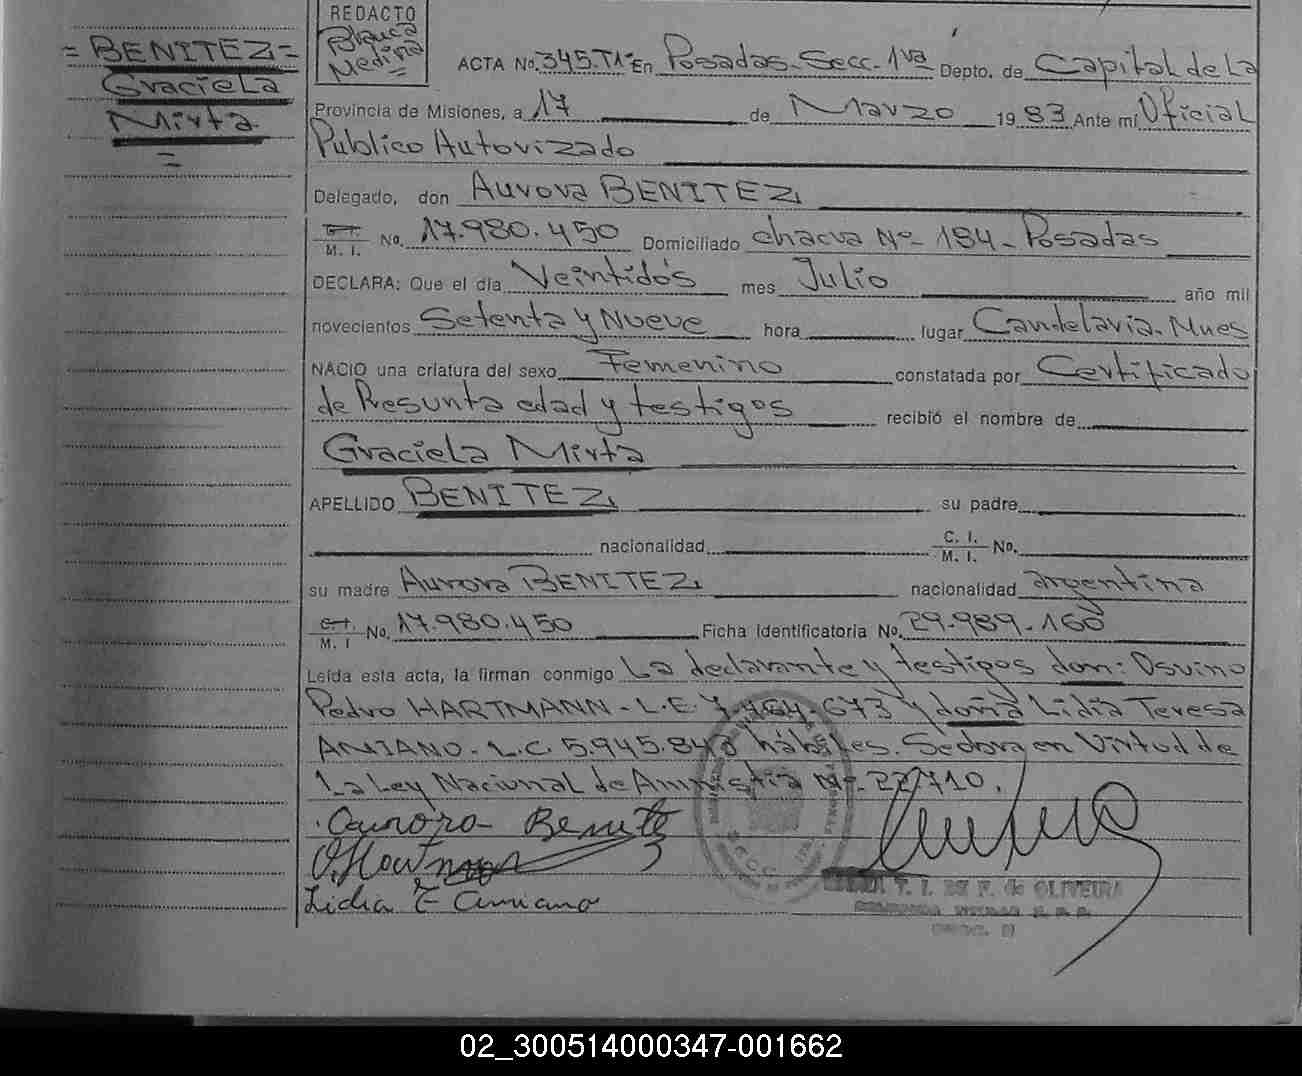 = BENITEZ =
Graciela
Mirta
=
REDACTO
Blanca
Medina
=
ACTA No. 345.T1º En Posadas. Secc. 1ra Depto. de Capital de La
Provincia de Misiones, a 17 de Marzo 1983 Ante mí Oficial
Publico Autorizado
Delegado, don Aurora BENITEZ
C. I.
M. I. No. 17.980.450 Domiciliado chacra Nº 184 - Posadas
DECLARA: Que el día Veintidós mes Julio año mil
novecientos Setenta y Nueve hora lugar Candelaria. Mnes
NACIO una criatura del sexo Femenino constatada por Certificado
de Presunta edad y testigos recibió el nombre de
Graciela Mirta
APELLIDO BENITEZ su padre
nacionalidad C. I.
M. I. No.
su madre Aurora BENITEZ nacionalidad argentina
C. I.
M. I No. 17.980.450 Ficha Identificatoria No. 29.989.160
Leída esta acta, la firman conmigo La declarante y testigos don: Osvino
Pedro HARTMANN - L.E. 7.464.673 y doña Lidia Teresa
AMIANO - L.C. 5.945.842 hábiles. Se labra en Virtud de
La Ley Nacional de Amnistia Nº 22710.
Aurora Benitez
O. Hartmann
Lidia T Amiano
T. I. F. de OLIVEIRA
02_300514000347-001662